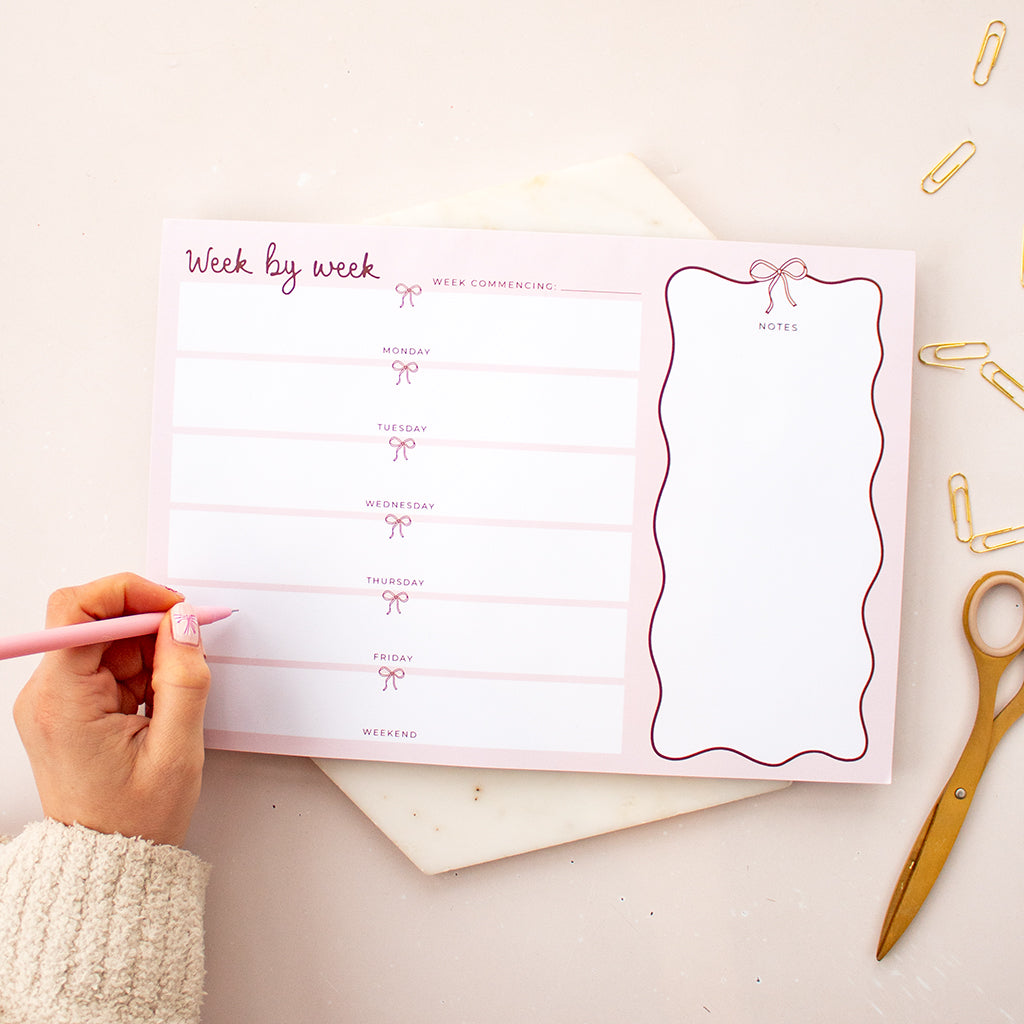 Week by week
WEEK COMMENCING:
MONDAY
TUESDAY
WEDNESDAY
THURSDAY
FRIDAY
WEEKEND
NOTES